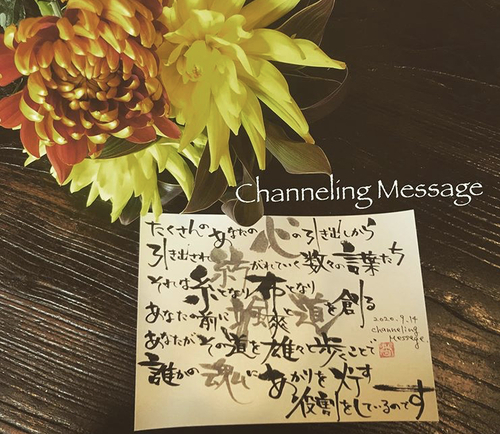 Channeling Message
たくさんのあなたの心の引き出しから
引き出され紡がれていく数々の言葉たち
それは糸となり布となり
あなたの前に颯爽と道を創る
あなたがその道を雄々と歩くことで
誰かの魂にあかりを灯す
役割をしているのです
2020.9.14
channeling
message